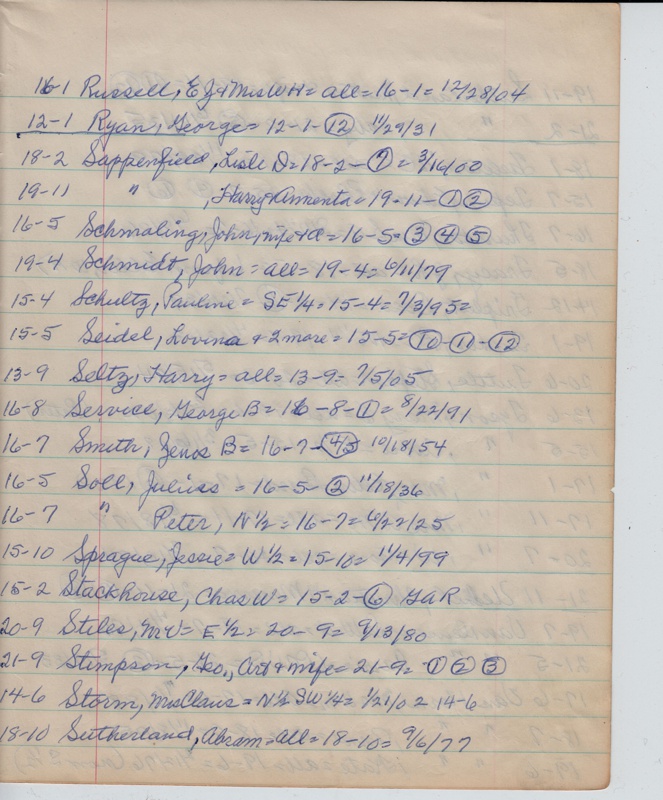 16-1 Russell, EJ & Mrs WH = all = 16-1 = 12/28/04
12-1 Ryan, George = 12-1-⑫ 11/29/31
18-2 Sappenfield, Lisle D = 18-2-⑦ = 3/16/00
19-11 " , Harry & Armenta = 19-11-①②
16-5 Schmaling, John, wife & a = 16-5= ③④⑤
19-4 Schmidt, John = all = 19-4 = 6/11/79
15-4 Schultz, Pauline = SE 1/4 = 15-4 = 7/3/95 =
15-5 Seidel, Lovina & 2 more = 15-5= ⑩-⑪-⑫
13-9 Seltz, Harry = all = 13-9 = 7/5/05
16-8 Service, George B = 16-8-① = 8/22/91
16-7 Smith, Zenos B = 16-7-4/5 10/18/54
16-5 Soll, Julius = 16-5-② 11/18/36
16-7 " Peter, N 1/2 = 16-7 = 6/22/25
15-10 Sprague, Jessie = W 1/2 = 15-10 = 11/4/99
15-2 Stackhouse, Chas W = 15-2-⑥ GAR
20-9 Stiles, MV = E 1/2 = 20-9 = 9/13/80
21-9 Stimpson, Geo., Art & wife = 21-9 = ①②③
14-6 Storm, Mrs Claus = N 1/2 SW 1/4 = 1/21/02 14-6
18-10 Sutherland, Abram = all = 18-10 = 9/6/77